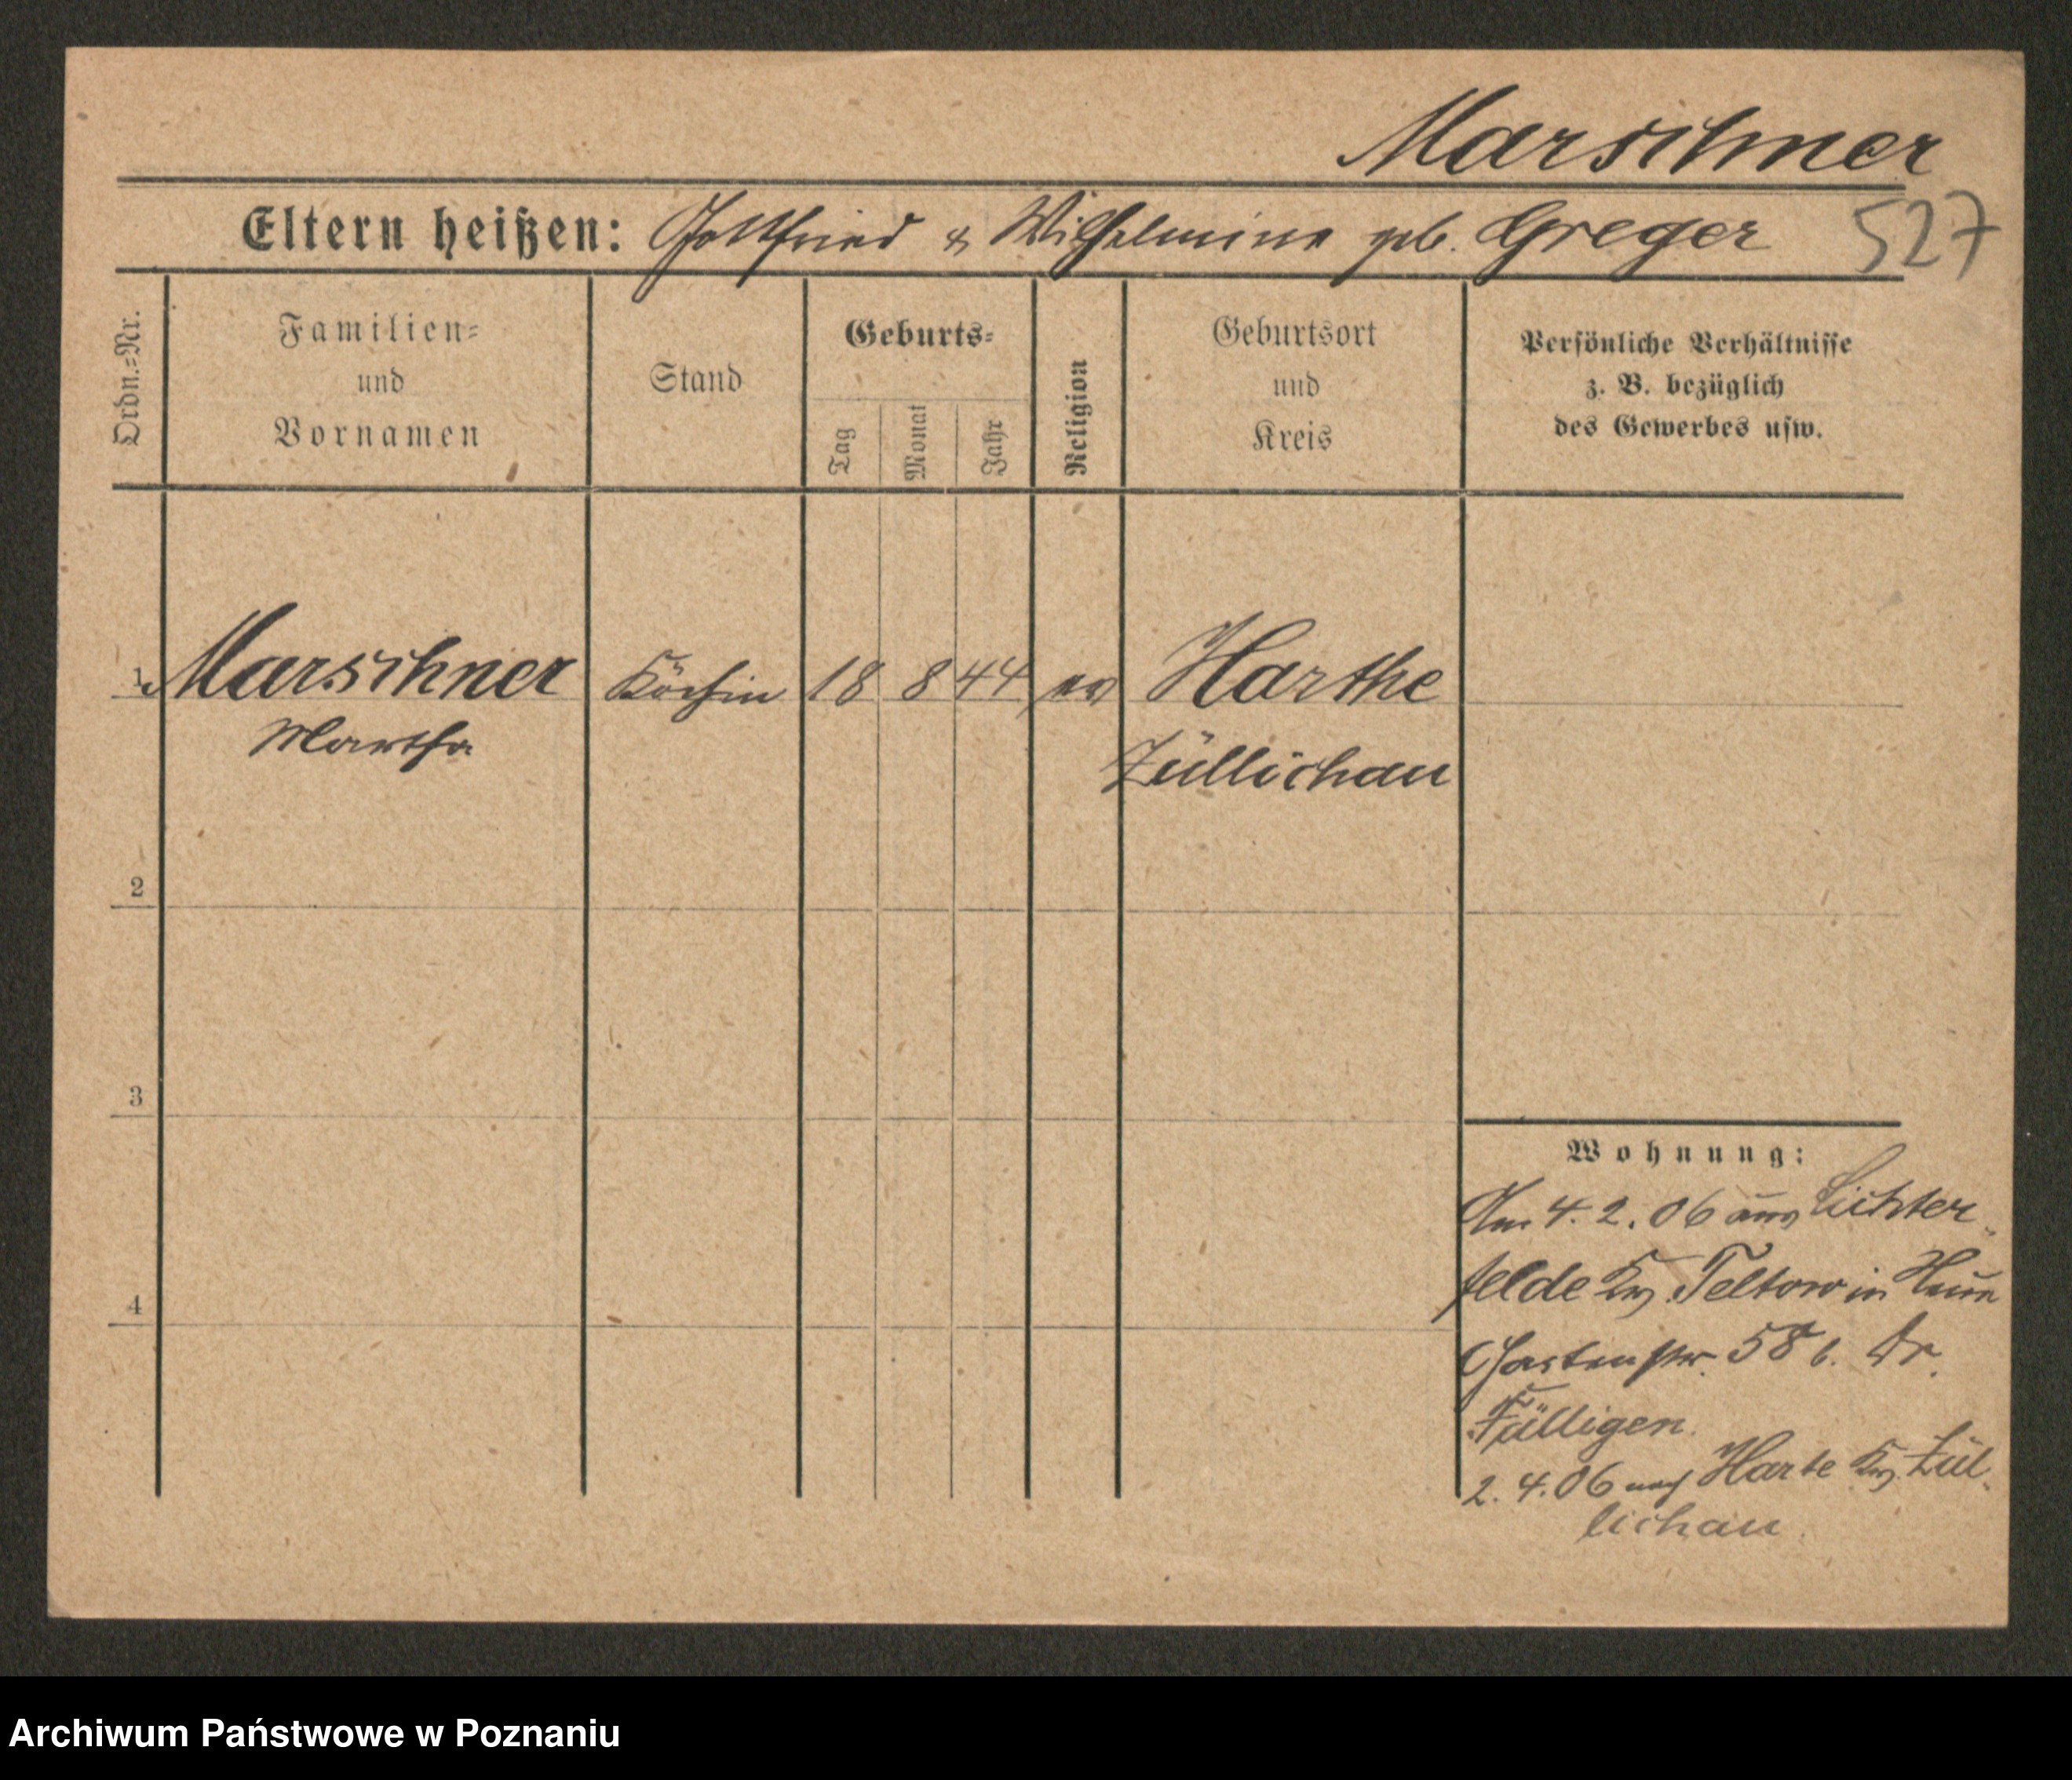 Marschner
Eltern heißen: Gottfried & Wilhelmine geb. Greger 527
Ordn.=Nr.
Familien=
und
Vornamen
Stand
Geburts=
Tag
Monat
Jahr
Religion
Geburtsort
und
Kreis
Persönliche Verhältnisse
z. B. bezüglich
des Gewerbes usw.
1 Marschner Köchin 18 8 44 ev Harthe
Martha
Züllichau
2
3
4
Wohnung:
Am 4.2.06 aus Lichter-
felde Krs. Teltow in
Gartenstr. 58 b. Dr.
Fülligen.
2.4.06 nach Harte Krs. Zül-
lichau.
Archiwum Państwowe w Poznaniu